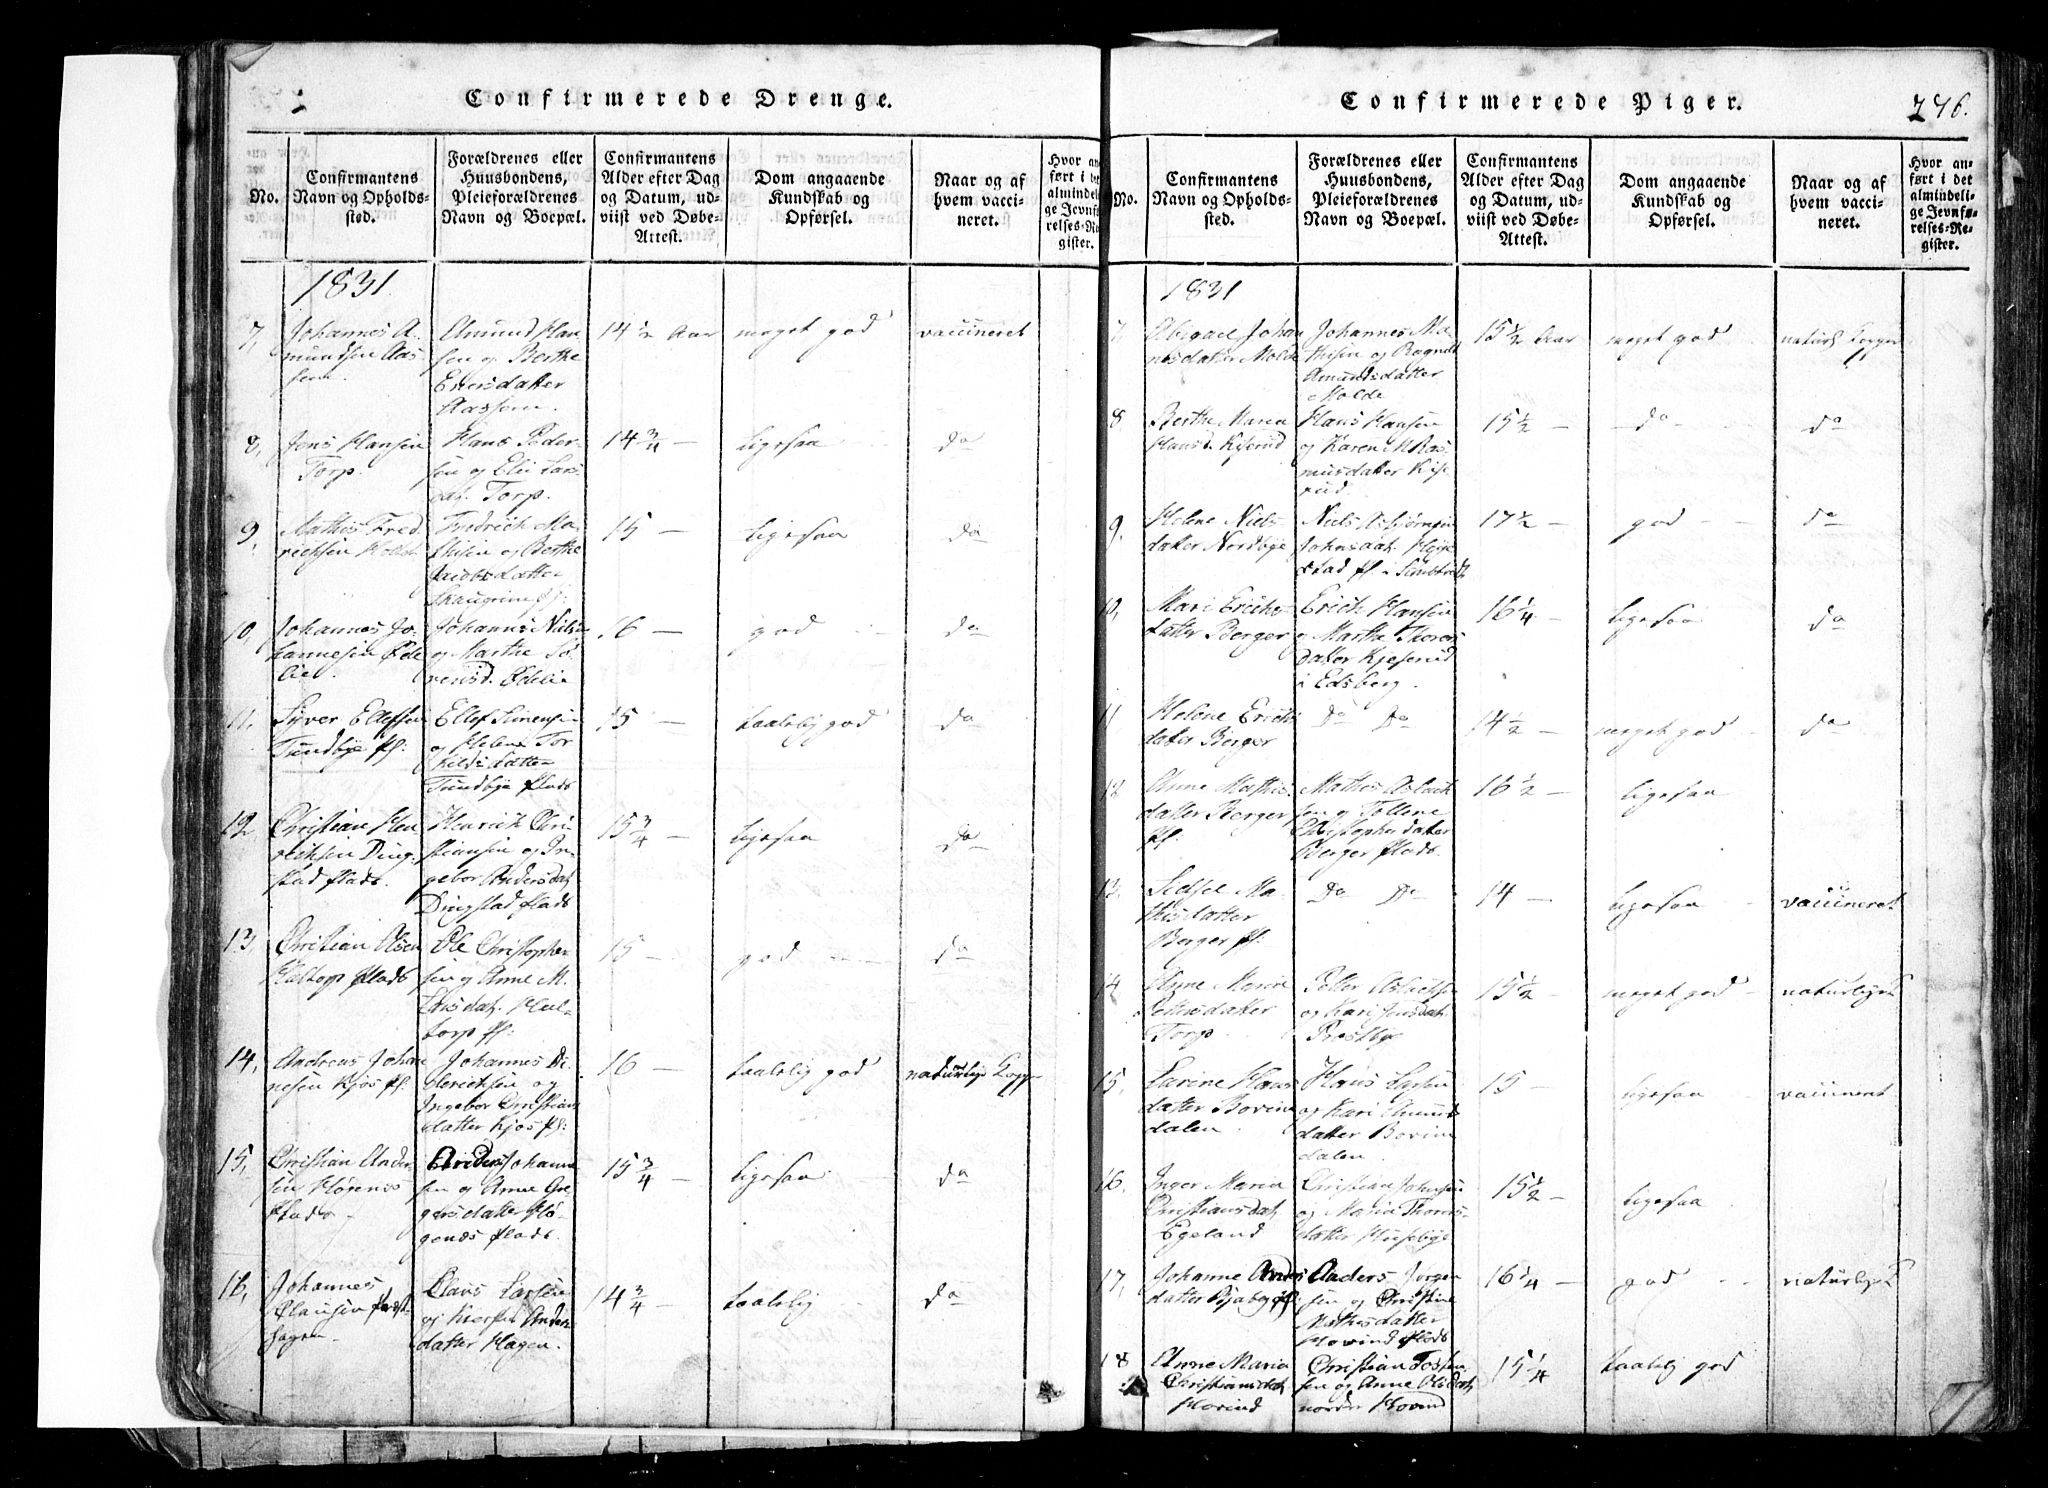 Confirmerede Drenge.
No.
Confirmantens
Navn og Opholds-
sted.
Forældrenes eller
Huusbondens,
Pleieforældrenes
Navn og Boepæl.
Confirmantens
Alder efter Dag
og Datum, ud-
viist ved Døbe-
Attest.
Dom angaaende
Kundskab og
Opførsel.
Naar og af
hvem vacci-
neret.
Hvor an-
ført i det
almindeli-
ge Jevnfø-
relses-Re-
gister.
1831
7, Johannes A-
mundsen Aas
sem.
Amund Han
sen og Berthe
Ericsdatter
Aassem.
14 1/2 Aar
meget god
vaccineret
8, Jens Hansen
Torp.
Hans Peder-
sen og Eli Lars
dat. Torp.
14 3/4 —
ligesaa
do
9, Mathis Fred
richsen
Fredrich Ma-
thisen og Berthe
Jacobsdatter
15 —
ligesaa
do
10, Johannes Jo-
hannesen Øde
lien.
Johannes Niels
og Marthe Sø-
rensd. Ødelien
16 —
god
do
11, Syver Ellefsen
Tundbye pl:
Ellef Simensen
og Helene Tor
kildsdatter
Tundbye plads
15 —
taalelig god
do
12, Christian Hen
richsen Ding-
stad plads.
Henrich Chri-
stiansen og In-
gebor Andersdat,
Dingstad plads
15 3/4 —
ligesaa
do
13, Christian Olsen
Haltorp plads
Ole Christopher
sen og Anne M.
Larsdat. Hal-
torp pl:
15 —
god
do
14, Andreas Johan
nesen Kjos pl:
Johannes Di
derichsen og
Ingebor Christians
datter Kjos pl:
16 —
taalelig god
naturlige Kopper
15, Christian Ander
sen Høgenæs
plads
Anders Johanne
sen og Anne Gre
gersdatter Hø-
genæs plads.
15 3/4 —
ligesaa
do
16, Johannes
Clausen
Hagen
Claus Larsen
og Kiersti Anders
datter Hagen.
14 3/4 —
taalelig
do
Confirmerede Piger.
276.
No.
Confirmantens
Navn og Opholds-
sted.
Forældrenes eller
Huusbondens,
Pleieforældrenes
Navn og Boepæl.
Confirmantens
Alder efter Dag
og Datum, ud-
viist ved Døbe-
Attest.
Dom angaaende
Kundskab og
Opførsel.
Naar og af
hvem vacci-
neret.
Hvor an-
ført i det
almindeli-
ge Jevnfø-
relses-Re-
gister.
1831
7, Abigael Johan
nesdatter Molde
Johannes Ma-
thisen og Ragnild
Amundsdatter
Molde
15 1/2 Aar
meget god
naturl Kopper
8 Berthe Maria
Hansd. Kjserud
Hans Hansen
og Karen M Ras
musdatter Kis
rud.
15 1/2 —
do
do
9, Helene Niels
datter Nordbye
Niels Asbjørnsen
Johnsdat.
stad pl.
17 1/2 —
god
do
10, Mari Erichs-
datter Berger
Erich Hansen
og Marthe Thores
datter Kjeserud
i Edsberg.
16 1/4 —
ligesaa
do
11 Helene Erichs
datter Berger
Do Do
14 1/2 —
meget god
do
12 Anne Mathis-
datter Berger
pl.
Mathis Aslack
sen og Tollene
Christophersdatter
Berger plads.
16 1/2 —
ligesaa
13, Sidsel Ma-
thisdatter
Berger pl:
Do Do
14 —
ligesaa
vaccineret
14 Anne Maria
Pettersdatter
Torp
Petter Aslacksen
og Kari Jensdat.
Rostby
15 1/2 —
meget god
naturlige K
15, Karine Hans
datter Bovine
dalen
Hans Larsen
og Kari Amunds
datter Bovine
dalen.
15 —
ligesaa
vaccineret
16, Inger Maria
Christiansdat,
Egeland
Christian Johnsen
og Maria Thores-
datter Huseby
15 1/2 —
ligesaa
17, Johanne Anders
datter Bjaby pl:
Anders Jørgen
sen og Christine
Mathisdatter
Hovind plads
16 1/4 —
god
naturlige K
18 Anne Maria
Christiansdat,
Hovind
Christian Tosten
sen og Anne Olsdat,
nordre Hovind
15 1/4 —
taalelig god